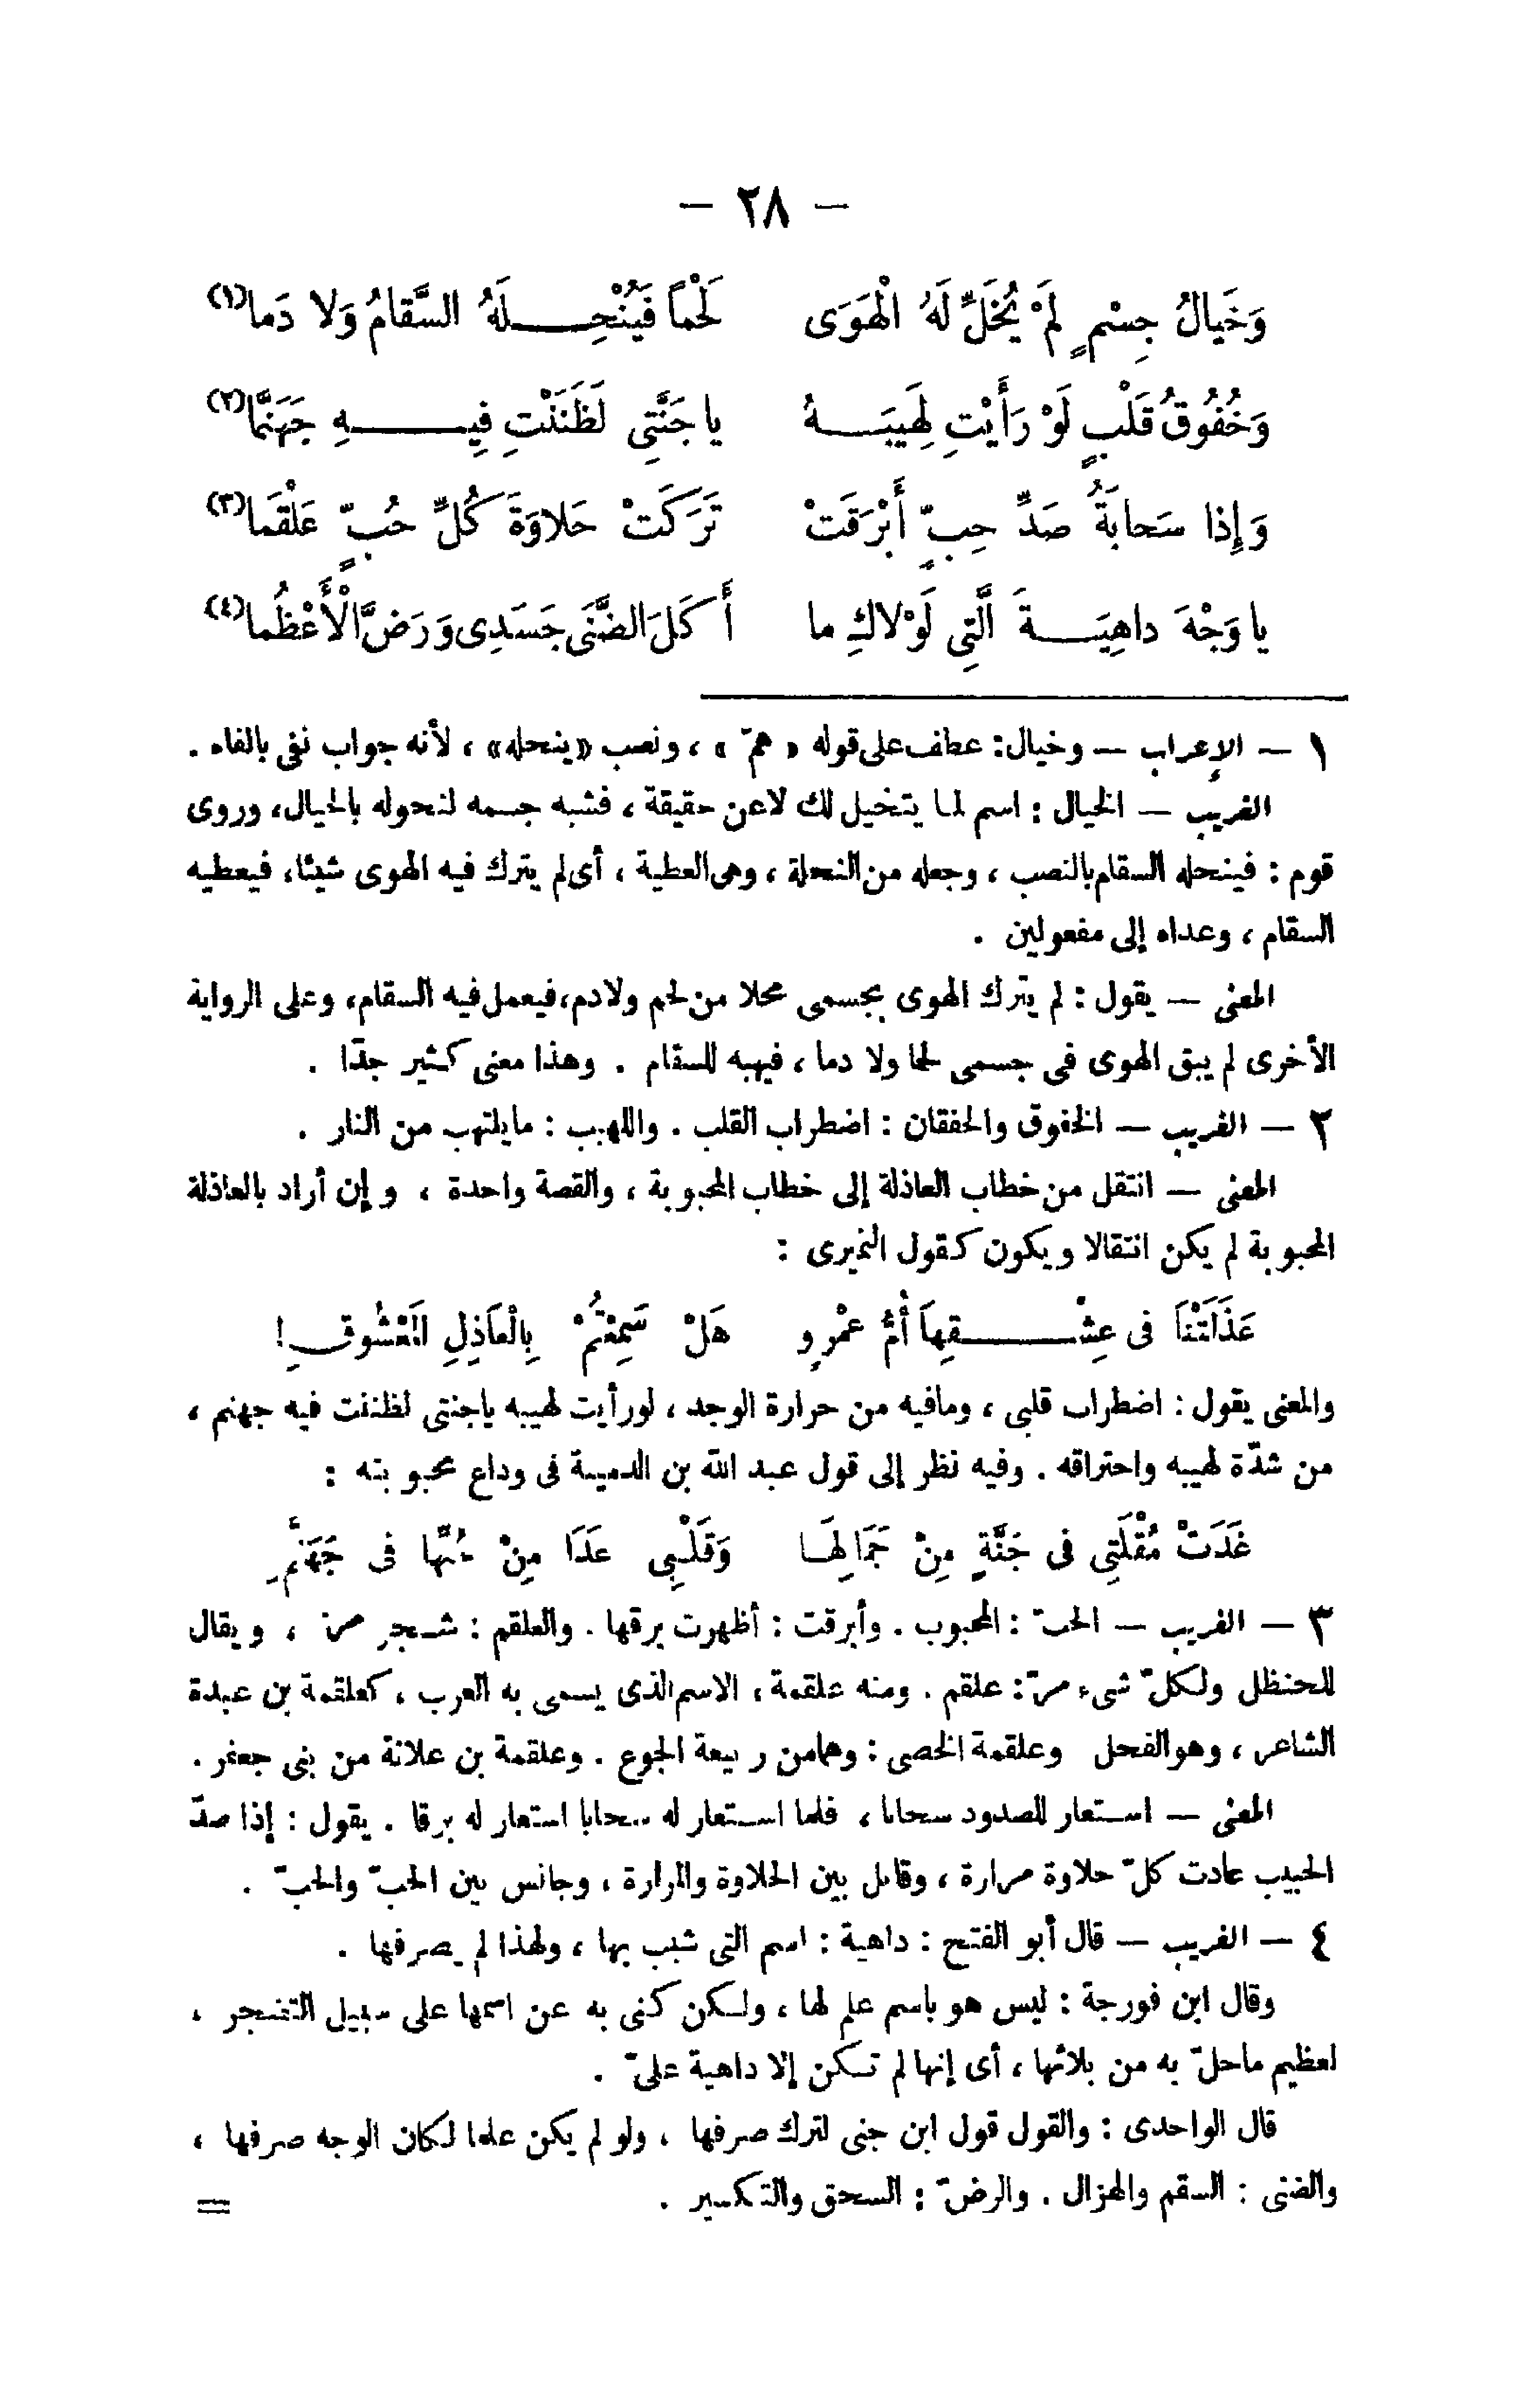 — ٢٨ —
وَخَيالُ جِسْمٍ لَمْ يُخَلِّ لَهُ الْهَوَى    لَحْماً فَيُنْحِـــلَهُ السَّقامُ وَلا دَما(١)
وَخُفُوقُ قَلْبٍ لَوْ رَأَيْتِ لَهِيبَـــهُ    يا جَنَّتِي لَظَنَنْتِ فِيـــهِ جَهَنَّما(٢)
وَإِذا سَحابَةُ صَدِّ حِبٍّ أَبْرَقَتْ    تَرَكَتْ حَلاوَةَ كُلِّ حُبٍّ عَلْقَما(٣)
يا وَجْهَ داهِيَـــةَ الَّتِي لَوْلاكِ ما    أَكَلَ الضَّنَى جَسَدِى وَرَضَّ الْأَعْظُما(٤)
١ — الإعراب — وخيال: عطف على قوله « همّ » ، ونصب «ينحله» ، لأنه جواب نفى بالفاء .
الغريب — الخيال : اسم لما يتخيل لك لاعن حقيقة ، فشبه جسمه لنحوله بالخيال، وروى
قوم : فينحله السقام بالنصب ، وجعله من النحلة ، وهى العطية ، أى لم يترك فيه الهوى شيئا، فيعطيه
السقام ، وعداه إلى مفعولين .
المعنى — يقول : لم يترك الهوى بجسمى محلا من لحم ولادم،فيعمل فيه السقام، وعلى الرواية
الأخرى لم يبق الهوى فى جسمى لحما ولا دما ، فيهبه للسقام . وهذا معنى كثير جدّا .
٢ — الغريب — الخفوق والخفقان : اضطراب القلب . واللهيب : مايلتهب من النار .
المعنى — انتقل من خطاب العاذلة إلى خطاب المحبوبة ، والقصة واحدة ، وإن أراد بالعاذلة
المحبوبة لم يكن انتقالا ويكون كقول النميرى :
عَذَلَتْنَا فى عِشْـــقِهَا أُمُّ عَمْرٍو    هَلْ سَمِعْتُمْ بِالْعَاذِلِ الْمَعْشُوقِ!
والمعنى يقول : اضطراب قلبى ، ومافيه من حرارة الوجد ، لورأيت لهيبه ياجنتى لظننت فيه جهنم ،
من شدّة لهيبه واحتراقه . وفيه نظر إلى قول عبد الله بن الدمينة فى وداع محبوبته :
غَدَتْ مُقْلَتِي فى جَنَّةٍ مِنْ جَمَالِهَـا    وَقَلْبِي غَدَا مِنْ حُبِّهَا فى جَهَنَّمِ
٣ — الغريب — الحبّ : المحبوب . وأبرقت : أظهرت برقها . والعلقم : شجر مرّ ، ويقال
للحنظل ولكلّ شىء مرّ: علقم . ومنه علقمة ، الاسم الذى يسمى به العرب ، كعلقمة بن عبدة
الشاعر ، وهو الفحل وعلقمة الخصى : وهمامن ربيعة الجوع . وعلقمة بن علاثة من بنى جعفر .
المعنى — استعار للصدود سحابا ، فلما استعار له سحابا استعار له برقا . يقول : إذا صدّ
الحبيب عادت كلّ حلاوة مرارة ، وقابل بين الحلاوة والمرارة ، وجانس بين الحبّ والحبّ .
٤ — الغريب — قال أبو الفتح : داهية : اسم التى شبب بها ، ولهذا لم يصرفها .
وقال ابن فورجة : ليس هو باسم علم لها ، ولكن كنى به عن اسمها على سبيل التضجر ،
لعظيم ماحلّ به من بلائها ، أى إنها لم تكن إلا داهية علىّ .
قال الواحدى : والقول قول ابن جنى لترك صرفها ، ولو لم يكن علما لكان الوجه صرفها ،
والضنى : السقم والهزال . والرضّ : السحق والتكسير .
=